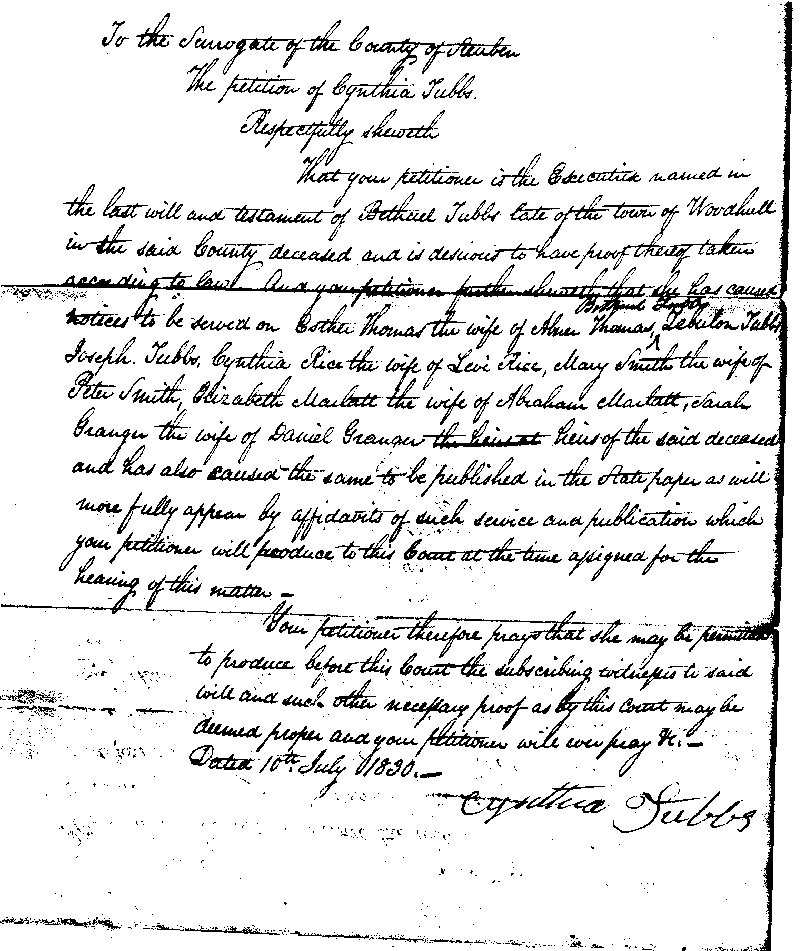 To the Surrogate of the County of Steuben
The petition of Cynthia Tubbs.
Respectfully sheweth
That your petitioner is the Executrix named in
the last will and testament of Bethuel Tubbs late of the town of Woodhull
in the said County deceased and is desirous to have proof thereof taken
according to law. And your petitioner further sheweth that she has caused
Bethuel Tubbs
notices to be served on Esther Thomas the wife of Abner Thomas, ^ Zebulon Tubbs
Joseph Tubbs, Cynthia Rice the wife of Levi Rice, Mary Smith the wife of
Peter Smith, Elizabeth Marlatt the wife of Abraham Marlatt, Sarah
Granger the wife of Daniel Granger the heirs at heirs of the said deceased
and has also caused the same to be published in the State paper as will
more fully appear by affidavits of such service and publication which
your petitioner will produce to this Court at the time assigned for the
hearing of this matter —
Your petitioner therefore prays that she may be permitted
to produce before this Court the subscribing witnesses to said
will and such other necessary proof as by this Court may be
deemed proper and your petitioner will ever pray &c. —
Dated 10th July 1830. —
Cynthia Tubbs